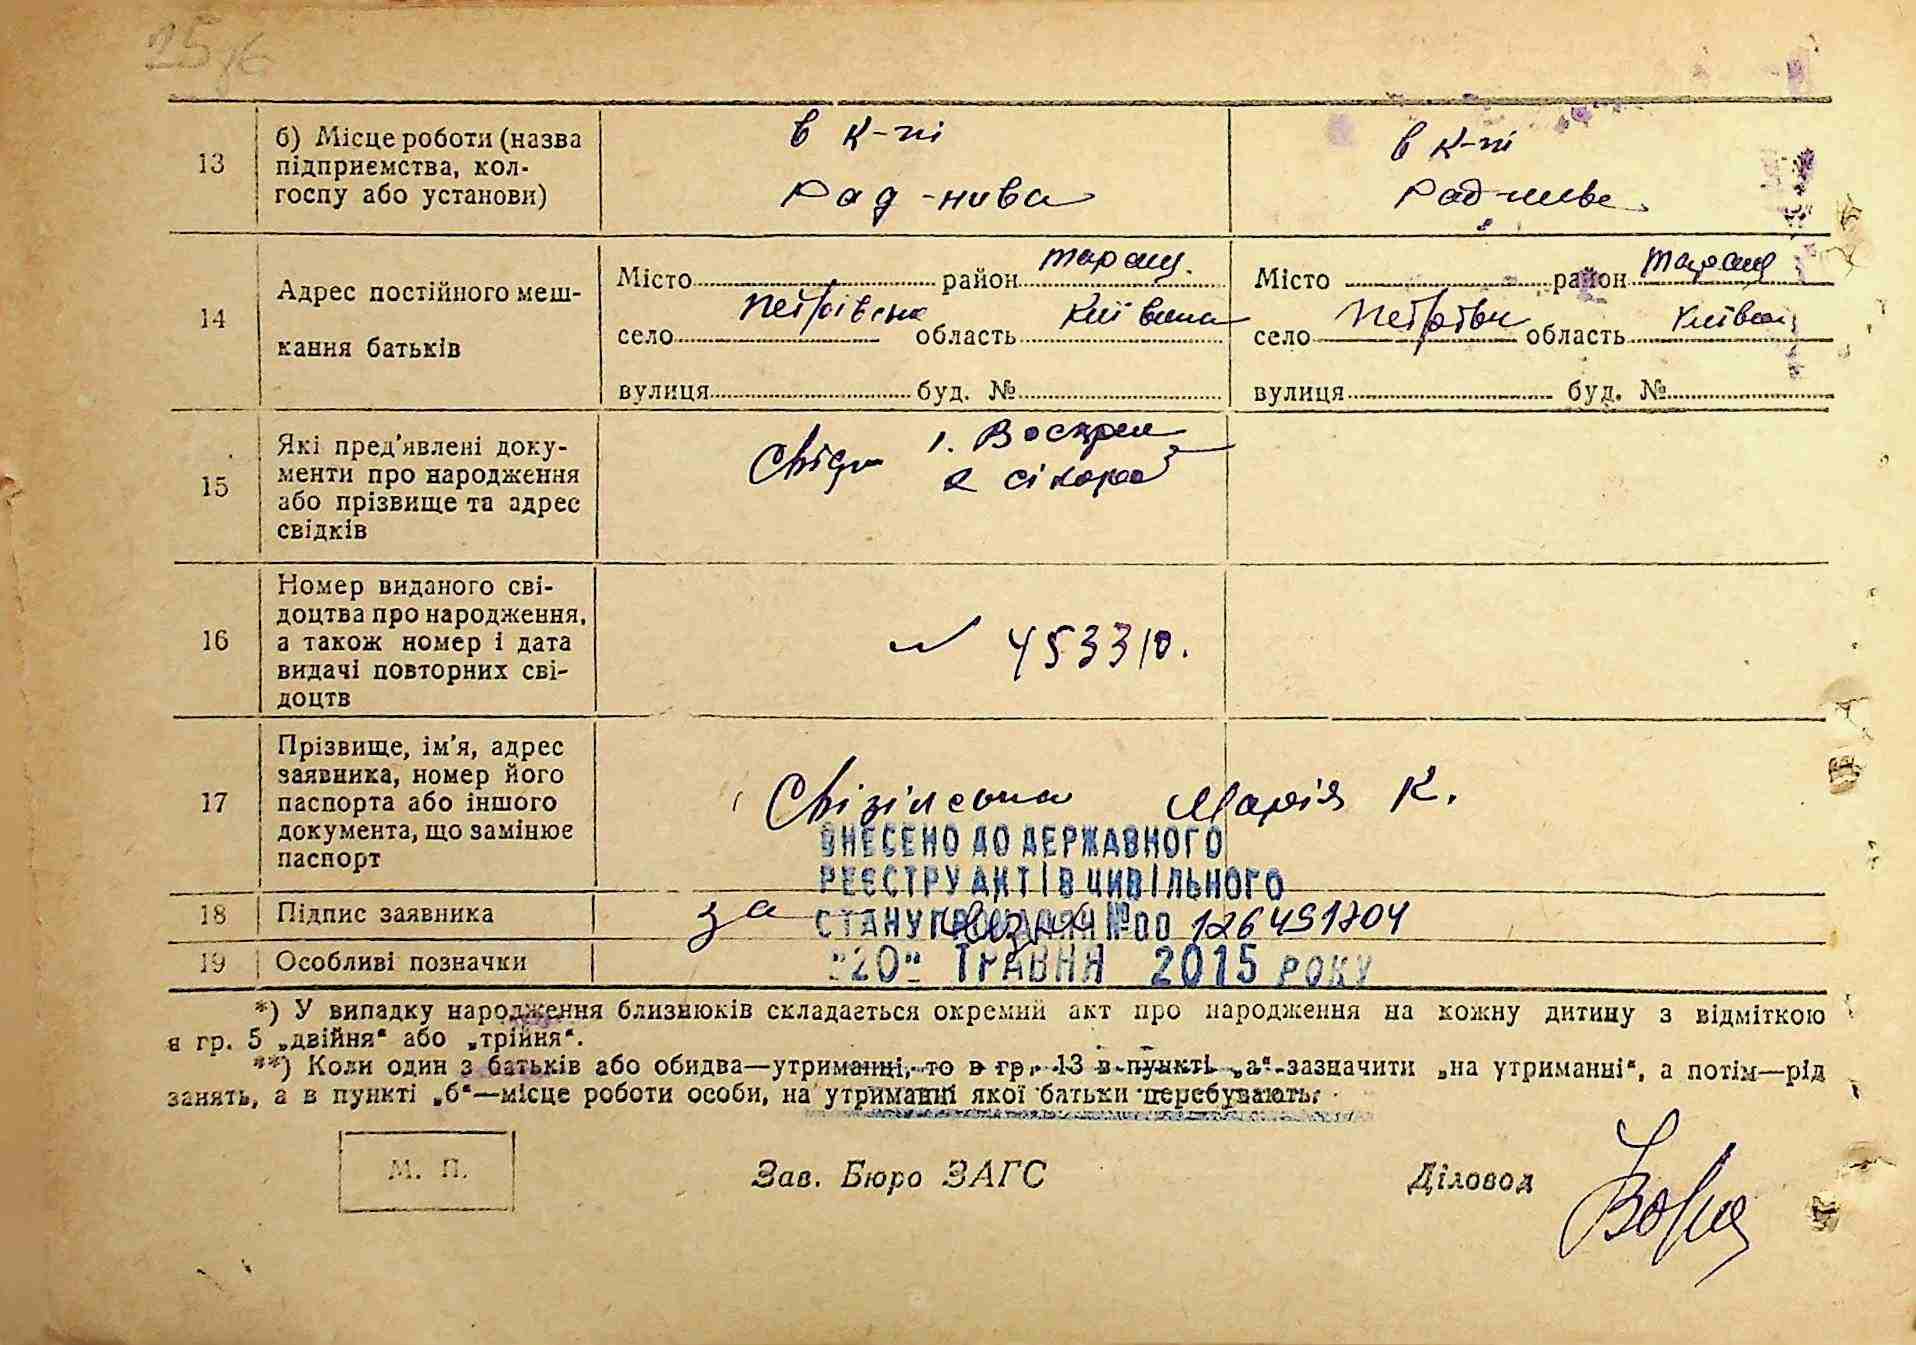 25
13
б) Місце роботи (назва
підприємства, кол-
госпу або установи)
в к-пі
Рад-нива
в к-пі
Рад-нива
14
Адрес постійного меш-
кання батьків
Місто район Таращ.
село Петрівська область Київська
вулиця буд. №
Місто район Таращ
село Петрівськ область Київськ
вулиця буд. №
15
Які пред'явлені доку-
менти про народження
або прізвище та адрес
свідків
1.
2
16
Номер виданого сві-
доцтва про народження,
а також номер і дата
видачі повторних сві-
доцтв
№ 453310.
17
Прізвище, ім'я, адрес
заявника, номер його
паспорта або іншого
документа, що замінює
паспорт
Марія К.
ВНЕСЕНО ДО ДЕРЖАВНОГО
РЕЄСТРУ АКТІВ ЦИВІЛЬНОГО
18
Підпис заявника
за
СТАНУ ГРОМАДЯН №00 126491704
19
Особливі позначки
"20" ТРАВНЯ 2015 РОКУ
*) У випадку народження близнюків складається окремий акт про народження на кожну дитину з відміткою
в гр. 5 „двійня“ або „трійня“.
**) Коли один з батьків або обидва—утриманці, то в гр. 13 в пункті „а“ зазначити „на утриманні“, а потім—рід
занять, а в пункті „б“—місце роботи особи, на утриманні якої батьки перебувають.
М. П.
Зав. Бюро ЗАГС
Діловод